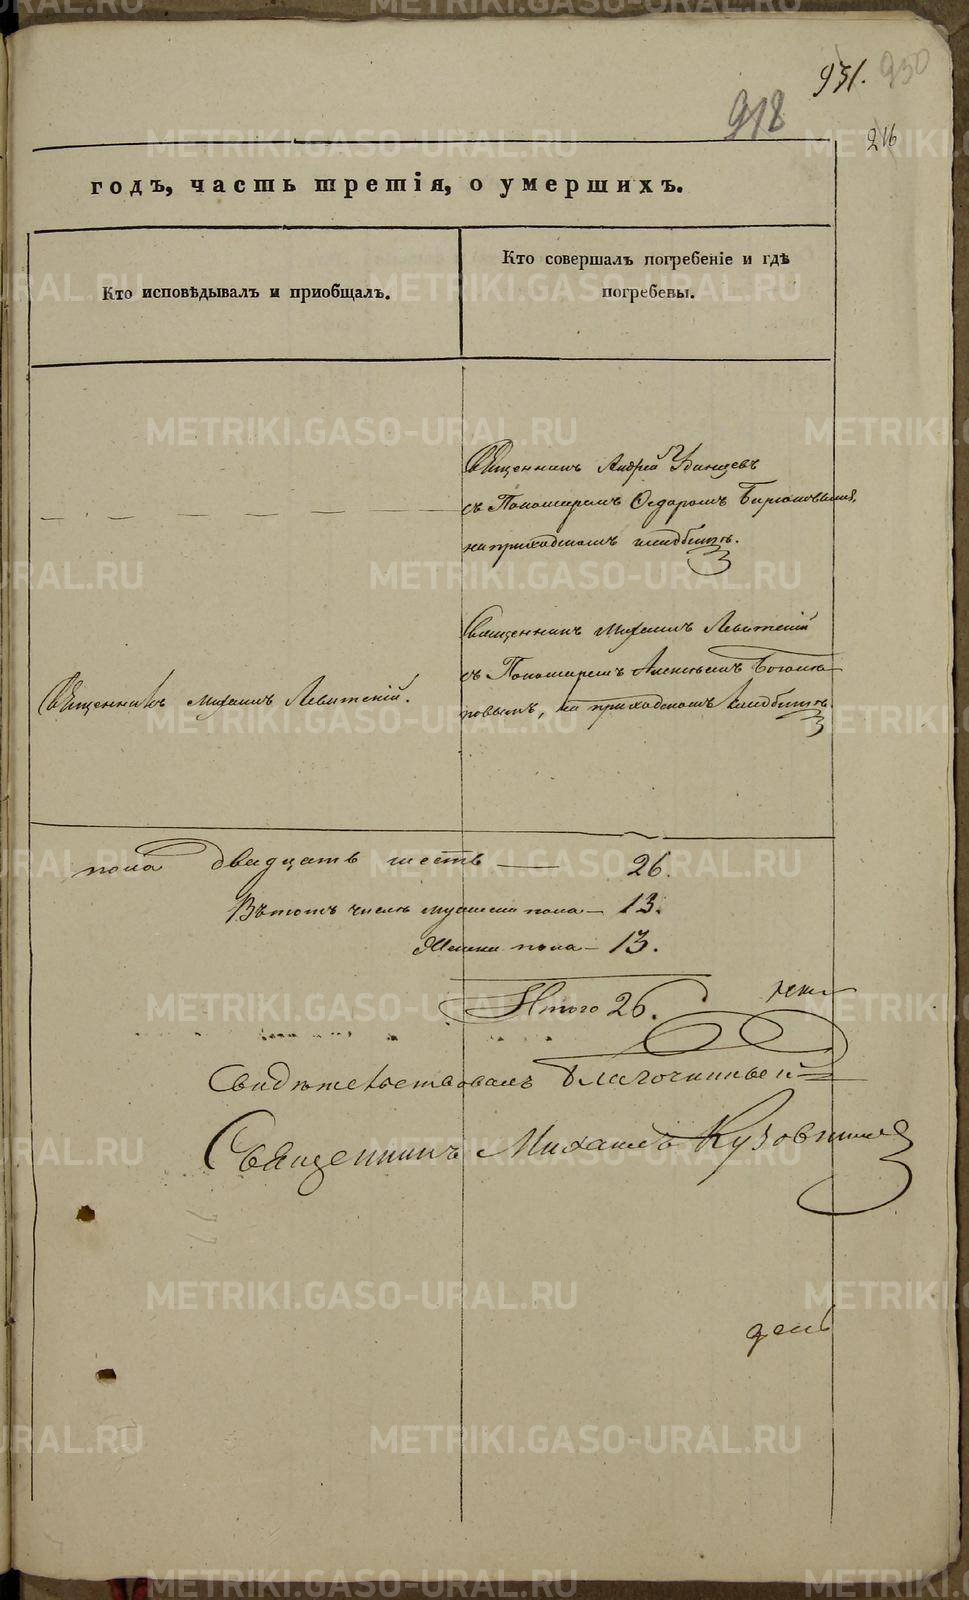 931. 930
918
216
годъ, часть третія, о умершихъ.
Кто исповѣдывалъ и приобщалъ.
Кто совершалъ погребеніе и гдѣ
погребены.
Священникъ Андрей
съ Пономаремъ Ѳедоромъ
на приходскомъ кладбищѣ.
Священникъ Михаилъ Левитскій
съ Пономаремъ Алексѣемъ Богомо
ловымъ, на приходскомъ кладбищѣ.
Священникъ Михаилъ Левитскій.
пола двадцать шесть — 26.
Въ томъ числѣ мужеска пола — 13.
Женска пола — 13.
Итого 26.
Свидѣтельствовалъ Благочинный
Священникъ Михаилъ
день
METRIKI.GASO-URAL.RU